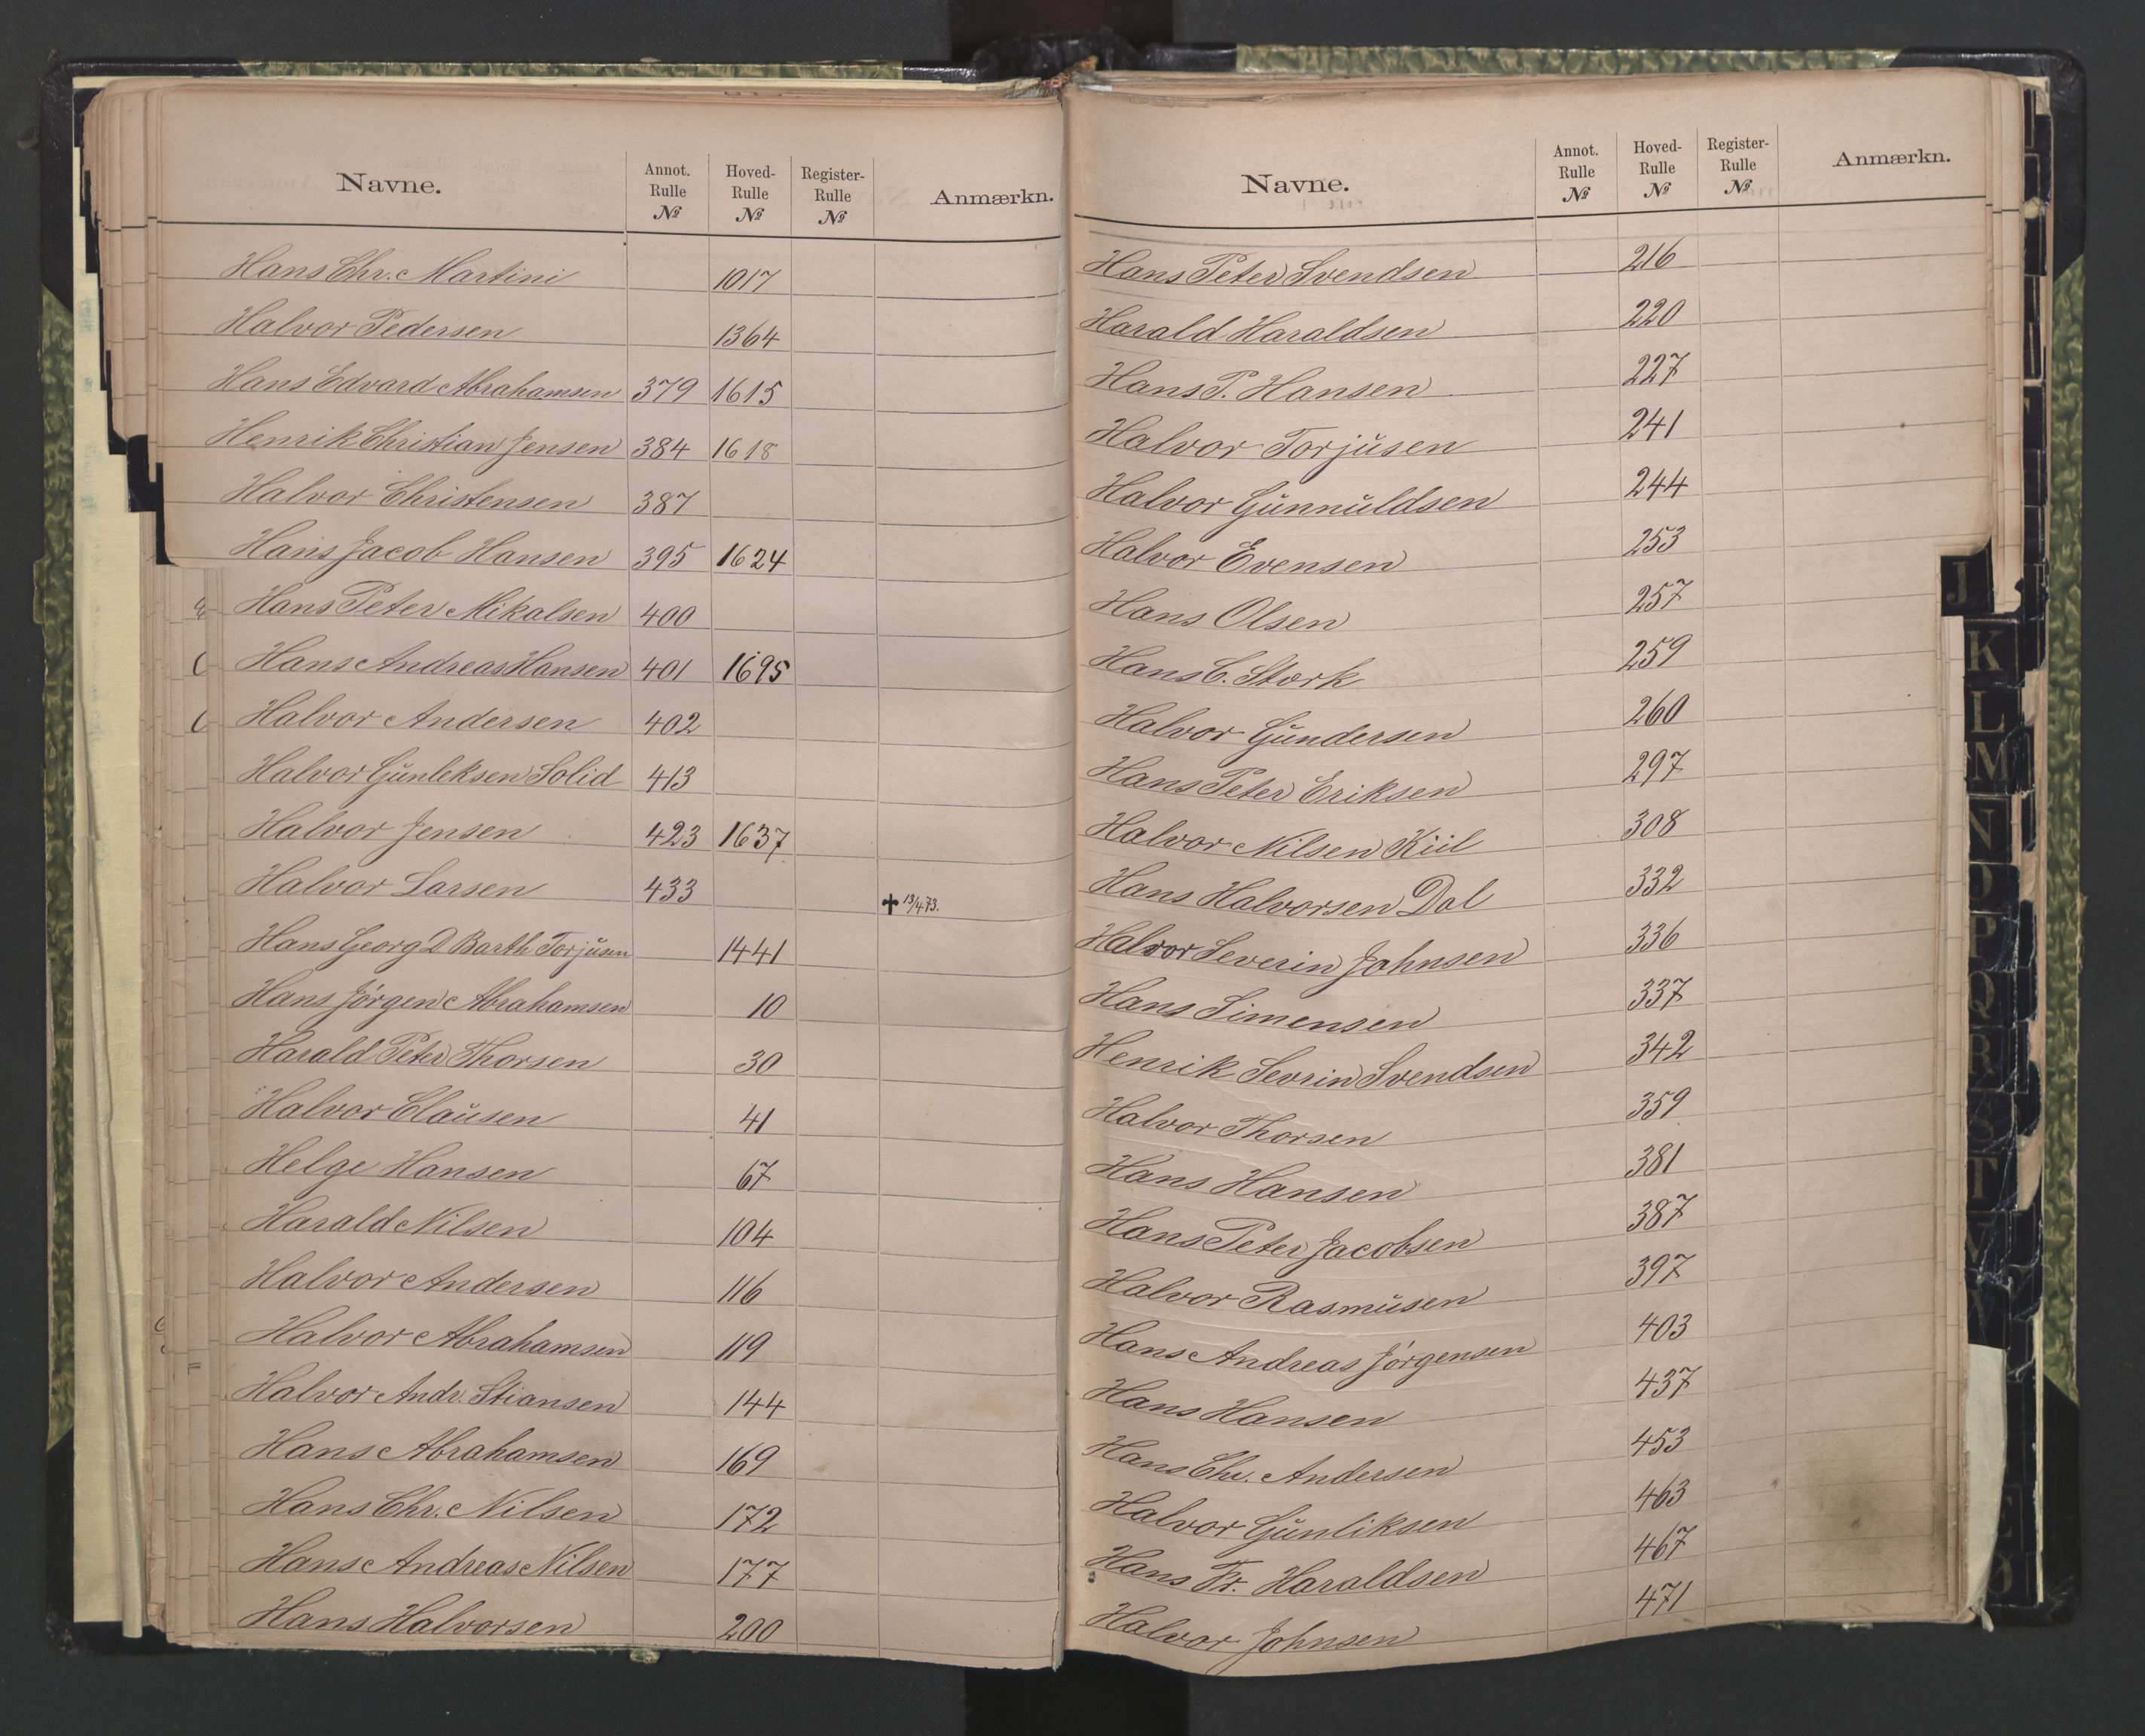 Navne. Annot. Rulle № Hoved-Rulle № Register-Rulle № Anmærkn.
Hans Chr. Martini 1017
Halvor Pedersen 1364
Hans Edvard Abrahamsen 379 1615
Henrik Christian Jensen 384 1618
Halvor Christensen 387
Hans Jacob Hansen 395 1624
Hans Peter Mikalsen 400
Hans Andreas Hansen 401 1695
Halvor Andersen 402
Halvor Gunleksen Solid 413
Halvor Jensen 423 1637
Halvor Larsen 433 ✝ 13/4 73.
Hans Georg D Barth Torjusen 1441
Hans Jørgen Abrahamsen 10
Harald Peter Thorsen 30
Halvor Clausen 41
Helge Hansen 67
Harald Nilsen 104
Halvor Andersen 116
Halvor Abrahamsen 119
Halvor Andr. Stiansen 144
Hans Abrahamsen 169
Hans Chr. Nilsen 172
Hans Andreas Nilsen 177
Hans Halvorsen 200
Navne. Annot. Rulle № Hoved-Rulle № Register-Rulle № Anmærkn.
Hans Peter Svendsen 216
Harald Haraldsen 220
Hans P. Hansen 227
Halvor Torjusen 241
Halvor Gunnuldsen 244
Halvor Evensen 253
Hans Olsen 257
Hans C. Stork 259
Halvor Gundersen 260
Hans Peter Eriksen 297
Halvor Nilsen Kiil 308
Hans Halvorsen Dal 332
Halvor Severin Johnsen 336
Hans Simensen 337
Henrik Sevrin Svendsen 342
Halvor Thorsen 359
Hans Hansen 381
Hans Peter Jacobsen 387
Halvor Rasmusen 397
Hans Andreas Jørgensen 403
Hans Hansen 437
Hans Chr. Andersen 453
Halvor Gunliksen 463
Hans Fr. Haraldsen 467
Halvor Johnsen 471
J
K
L
M
N
P
Q
R
S
T
V